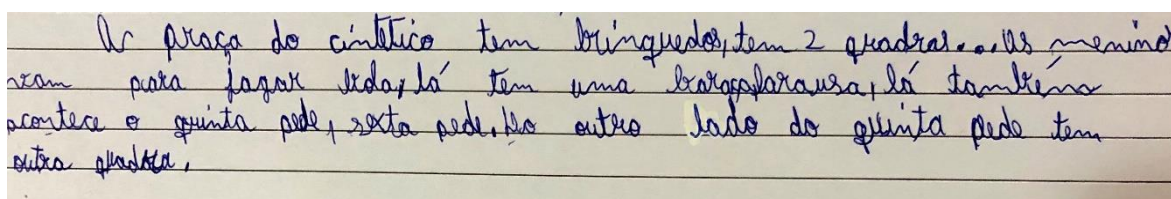 A praça do cintético tem brinquedos, tem 2 quadras... as menino
pata jogar lá tem uma lá também
acontece o quinta pede, sexta pede. No outro lado do quinta pede tem
outra quadra.